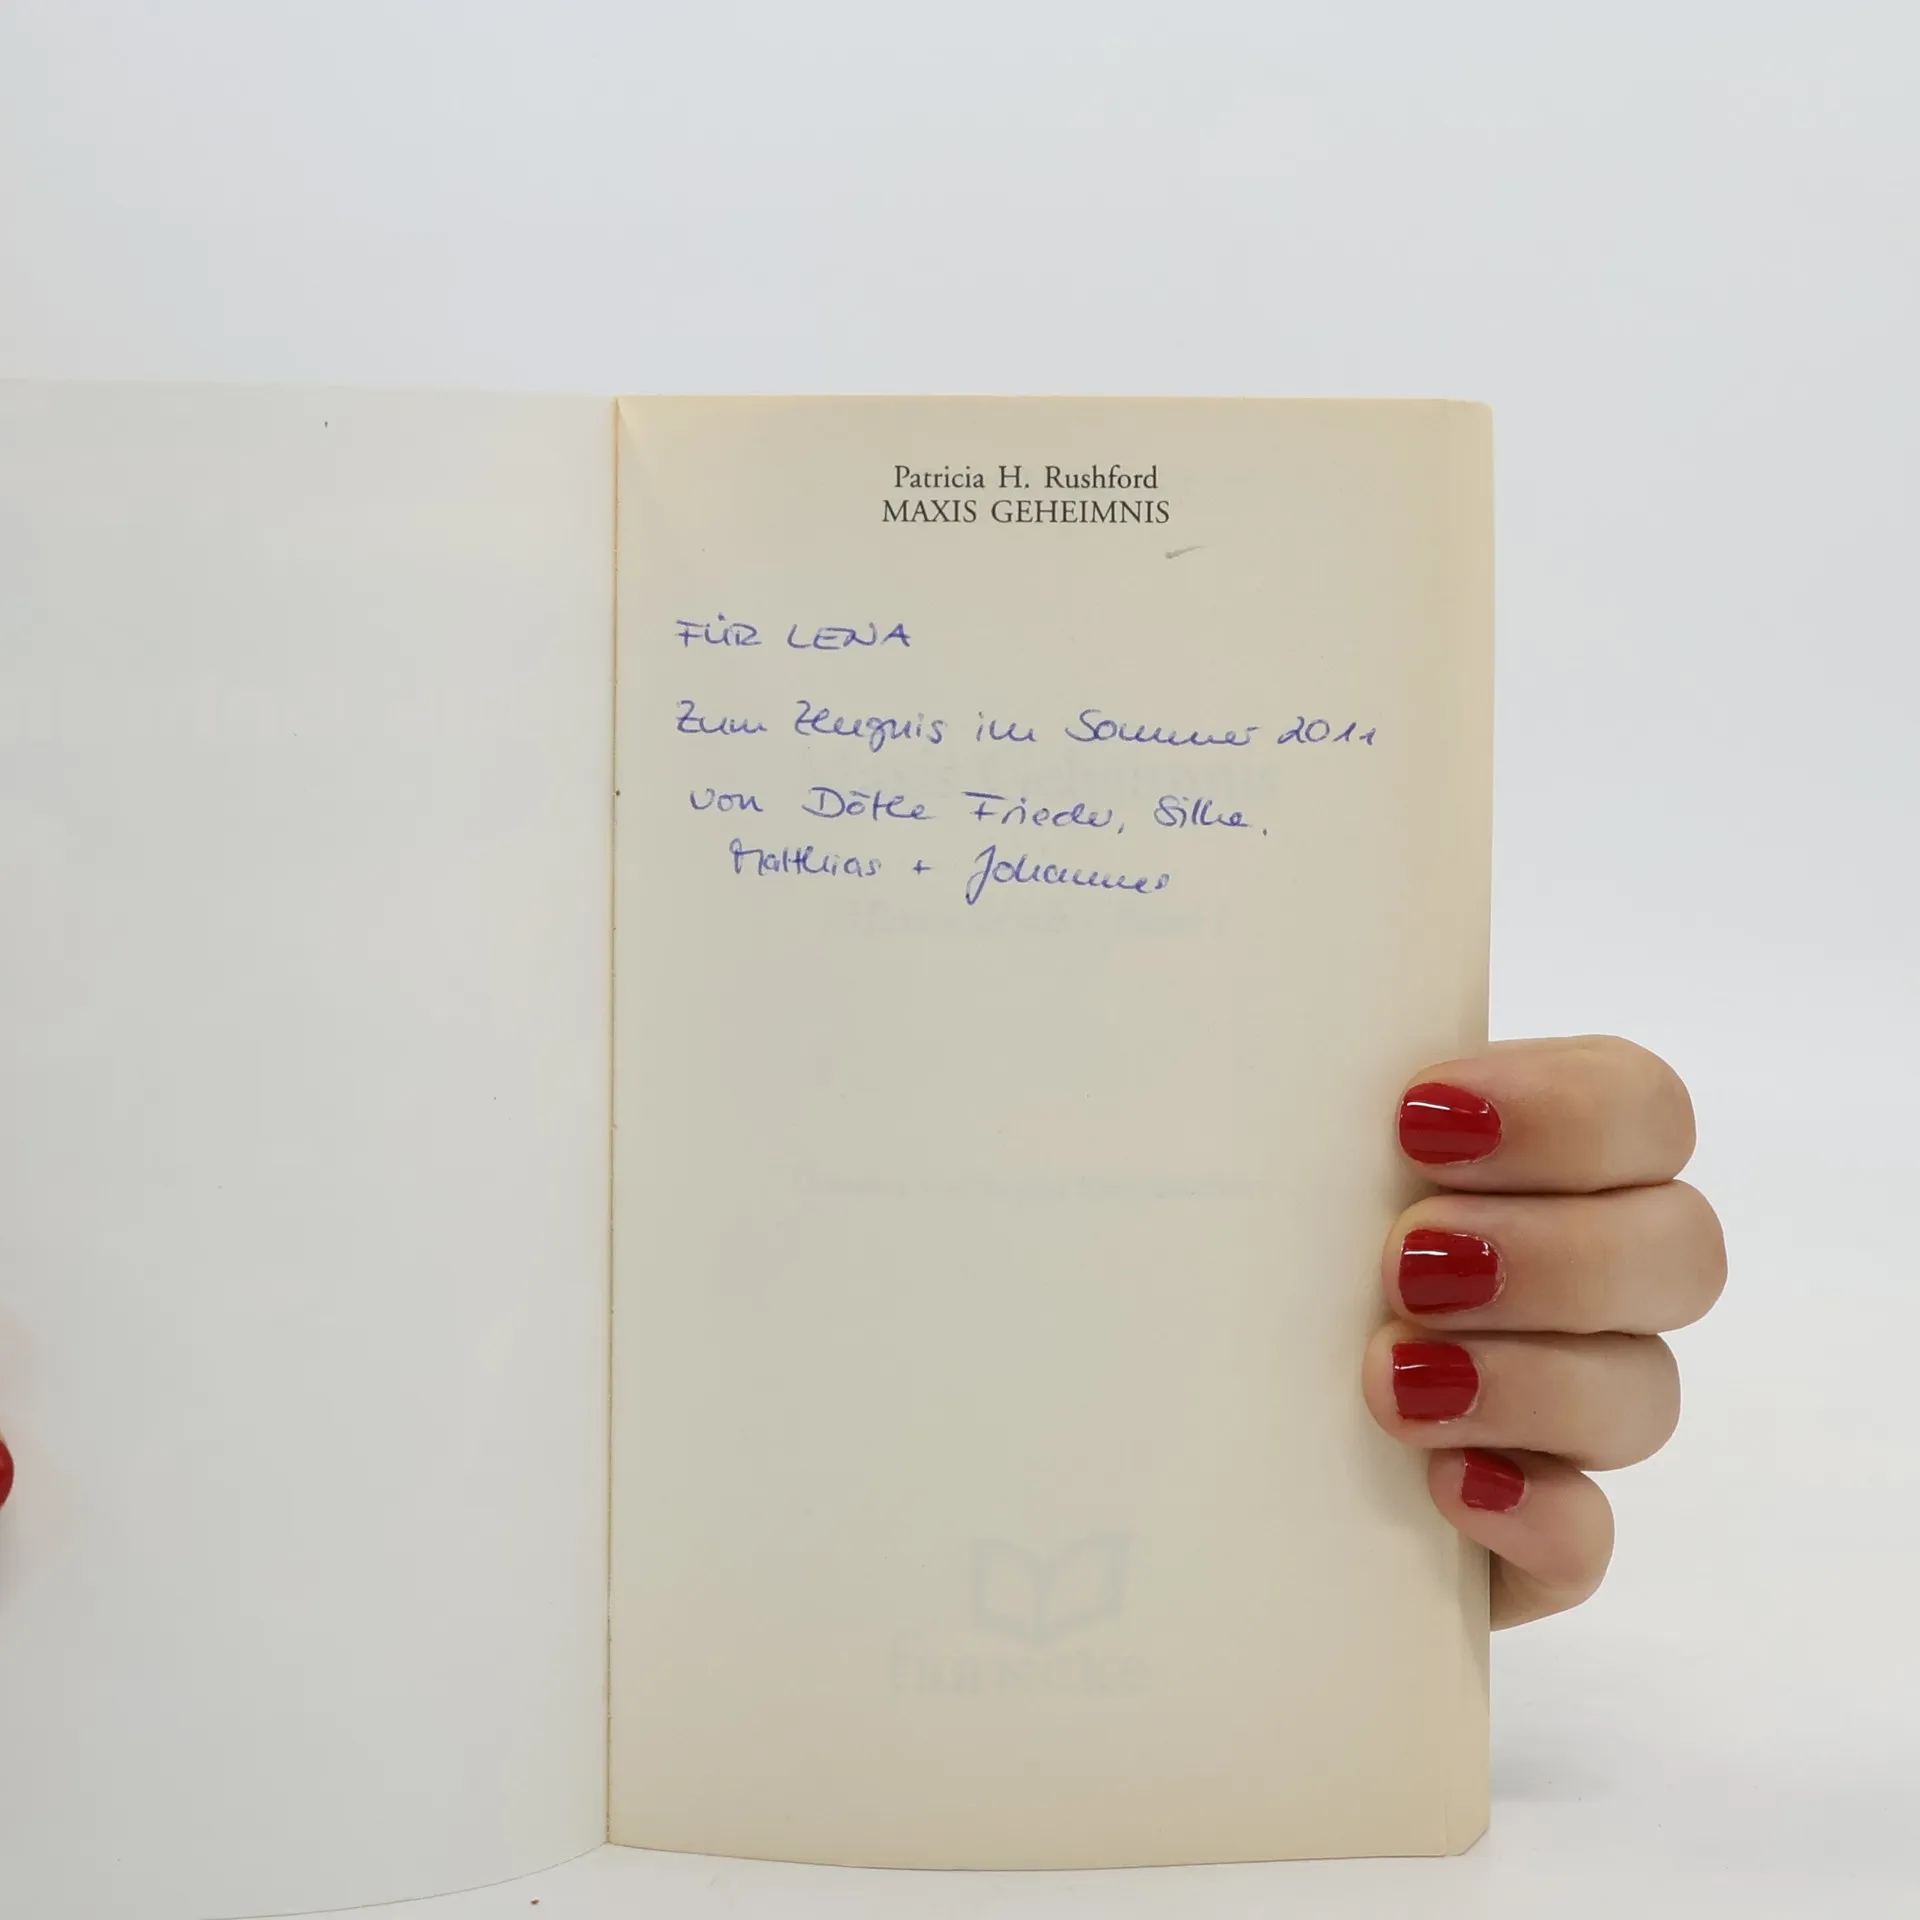 Patricia H. Rushford
MAXIS GEHEIMNIS
FÜR LENA
Zum Zeugnis im Sommer 2011
von Döte Frieder, Silke,
Matthias + Johannes
francke